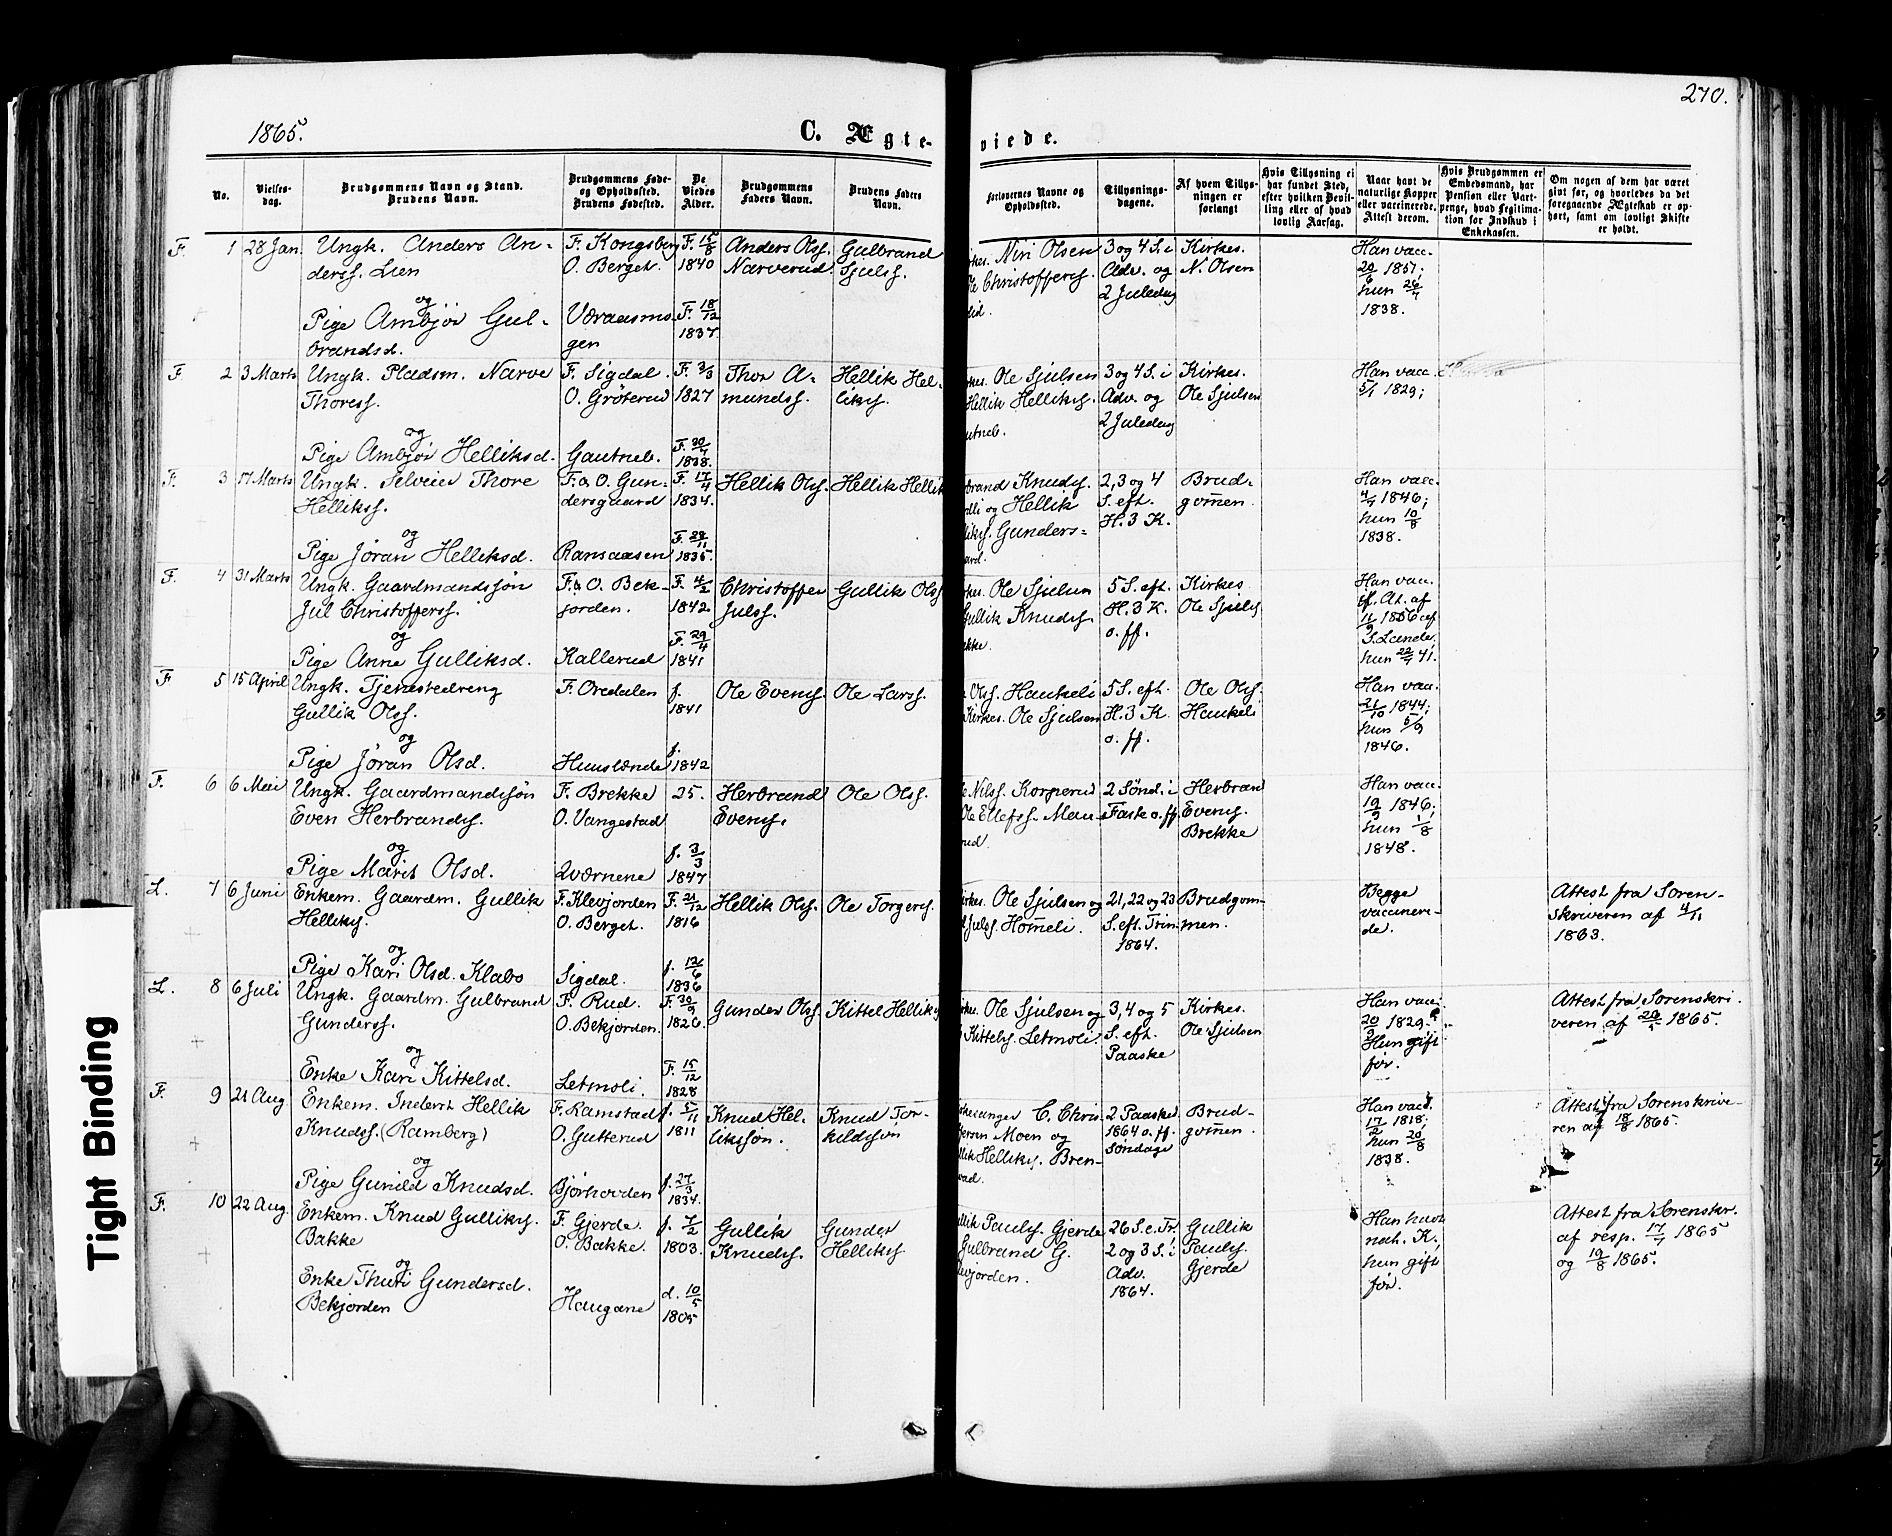 270.
1865.
C. Ægte-
viede.
No.
Vielses-
dag.
Brudgommens Navn og Stand.
Brudens Navn.
Brudgommens Føde-
og Opholdssted.
Brudens Fødested.
De
Viedes
Alder.
Brudgommens
Faders Navn.
Brudens Faders
Navn.
Forlovernes Navne og
Opholdssted.
Tillysnings-
dagene.
Af hvem Tillys-
ningen er
forlangt
Hvis Tillysning ei
har fundet Sted,
efter hvilken Bevil-
ling eller af hvad
lovlig Aarsag.
Naar havt de
naturlige Kopper
eller vaccinerede.
Attest derom.
Hvis Brudgommen er
Embedsmand, har
Pension eller Vart-
penge, hvad Legitima-
tion for Indskud i
Enkekassen.
Om nogen af dem har været
givt før, og hvorledes da det
foregaaende Ægteskab er op-
hørt, samt om lovligt Skifte
er holdt.
F. 1 28 Jan. Ungk. Anders An-
derss. Lien
og
Pige Ambjør Gul-
brandsd.
F. Kongsberg
O. Berget.
Væraasmo-
gen
F. 15/8
1840
F. 18/12
1837.
Anders Olss.
Narverud
Gulbrand
Sjulss.
Kirkes. Niri Olsen
Ole Christofferss.
lid.
3 og 4 S. i
Adv. og
2 Juledag
Kirkes.
N. Olsen
Han vacc.
20/6 1851;
hun 26/7
1838.
F. 2 3 Marts Ungk. Pladsm. Narve
Thoress.
og
Pige Ambjør Helliksd.
F. Sigdal.
O. Grøterud
Gautneb.
F. 3/3
1827
F. 20/7
1838.
Thor A-
mundss.
Hellik Hel-
likss.
kes. Ole Sjulsen
Hellik Hellikss.
utneb.
3 og 4 S. i
Adv. og
2 Juledag
Kirkes.
Ole Sjulsen
Han vacc.
5/1 1829;
F. 3 17 Marts Ungk. Selveier Thore
Hellikss.
og
Pige Jøran Helliksd.
F. o. O. Gun-
dersgaard
Ramaasen
F. 17/4
1834.
F. 29/11
1835.
Hellik Olss.
Hellik Hellik
brand Knudss.
dli og Hellik
likss. Gunders-
ard.
2, 3 og 4
S. eft.
H. 3 K.
Brud-
gom̅en.
Han vacc.
4/9 1846;
hun 10/8
1838.
F. 4 31 Marts Ungk. Gaardmandssøn
Jul Christofferss.
og
Pige Anne Gulliksd.
F. o. O. Bek-
jorden.
Kallerud
F. 4/2
1842
F. 29/4
1841
Christoffer
Julss.
Gullik Olss
kes. Ole Sjulsen
Gullik Knudss.
kke.
5 S. eft.
H. 3 K.
o. ff.
Kirkes
Ole Sjulss
Han vac.
ef. At. af
11/9 1856 af
S. Lande.
hun 22/7 41.
F. 5 15 April Ungk. Tjenestedreng
Gullik Olss.
og
Pige Jøran Olsd.
F. Oredalen
Huuslænde
f.
1841
f.
1842
Ole Evenss.
Ole Larss.
Olss. Haukeli
Kirkes. Ole Sjulsen
5 S. eft.
H. 3 K.
o. ff.
Ole Olss.
Haukeli
Han vac.
21/10 1844;
hun 5/9
1846.
F. 6 6 Mai Ungk. Gaardmandssøn
Even Herbrandss.
og
Pige Marit Olsd.
F. Brekke
O. Vangestad
Qværnene
25.
f. 3/3
1847
Herbrand
Evenss.
Ole Olss.
Nilss. Korperud
Ole Ellefss. Mau-
rud.
2 Sønd. i
Faste o. ff
Herbrand
Evenss.
Brekke
Han vacc.
19/9 1846;
hun 1/8
1848.
L. 7 6 Juni Enkem. Gaardm. Gullik
Hellikss.
og
Pige Kari Olsd. Klabo
F. Klevjorden
O. Berget.
Sigdal.
F. 21/12
1816
f. 12/6
1836
Hellik Olss.
Ole Torgerss.
irkes. Ole Sjulsen og
Julss. Hom̅eli.
21, 22 og 23
S. eft. Trin
1864.
Brudgom-
men.
Begge
vaccinere-
de.
Attest fra Soren-
skriveren af 4/11
1863.
L. 8 6 Juli Ungk. Gaardm. Gulbrand
Gunderss.
og
Enke Kari Kittelsd.
F. Rud.
O. Bekjorden.
Letmoli.
F. 30/9
1826.
F. 15/12
1828
Gunder Olss
Kittel Hellikss
kes. Ole Sjulsen og
Kittelss. Letmoli.
3, 4 og 5
S. eft.
Paaske
Kirkes.
Ole Sjulsen
Han vacc.
20/9 1829.
Hun gift
før.
Attest fra Sorenskri-
veren af 20/5 1865.
F. 9 21 Aug Enkem. Inderst Hellik
Knudss. (Ramberg)
og
Pige Gunild Knudsd.
F. Ramstad
O. Gutterud
Bjørhovden
f. 5/11
1811
f. 27/3
1834.
Knud Hel-
likssøn.
Knud Tor-
kildssøn
kesanger C. Chri-
ffersen Moen og
llik Hellikss. Bren-
vad.
2 Paaskd.
1864 o. ff.
Søndage
Brud-
gom̅en.
Han vacc.
17/2 1818;
hun 20/8
1838.
Attest fra Sorenskrive-
ren af 18/8 1865.
F. 10 22 Aug. Enkem. Knud Gullikss.
Bakke
og
Enke Thuri Gundersd.
Bekjorden
F. Gjerde.
O. Bakke.
Haugane
f. 7/2
1803.
d. 10/5
1805
Gullik
Knudss.
Gunder
Hellikss
llik Paulss. Gjerde
Gulbrand G.
jorden.
26 S. e. Tr.
2 og 3 S. i
Adv.
1864.
Gullik
Paulss.
Gjerde
Han havt
nat. K.
hun gift
før.
Attest fra Sorenskr.
af resp. 17/7 1865
og 19/8 1865.
Tight Binding